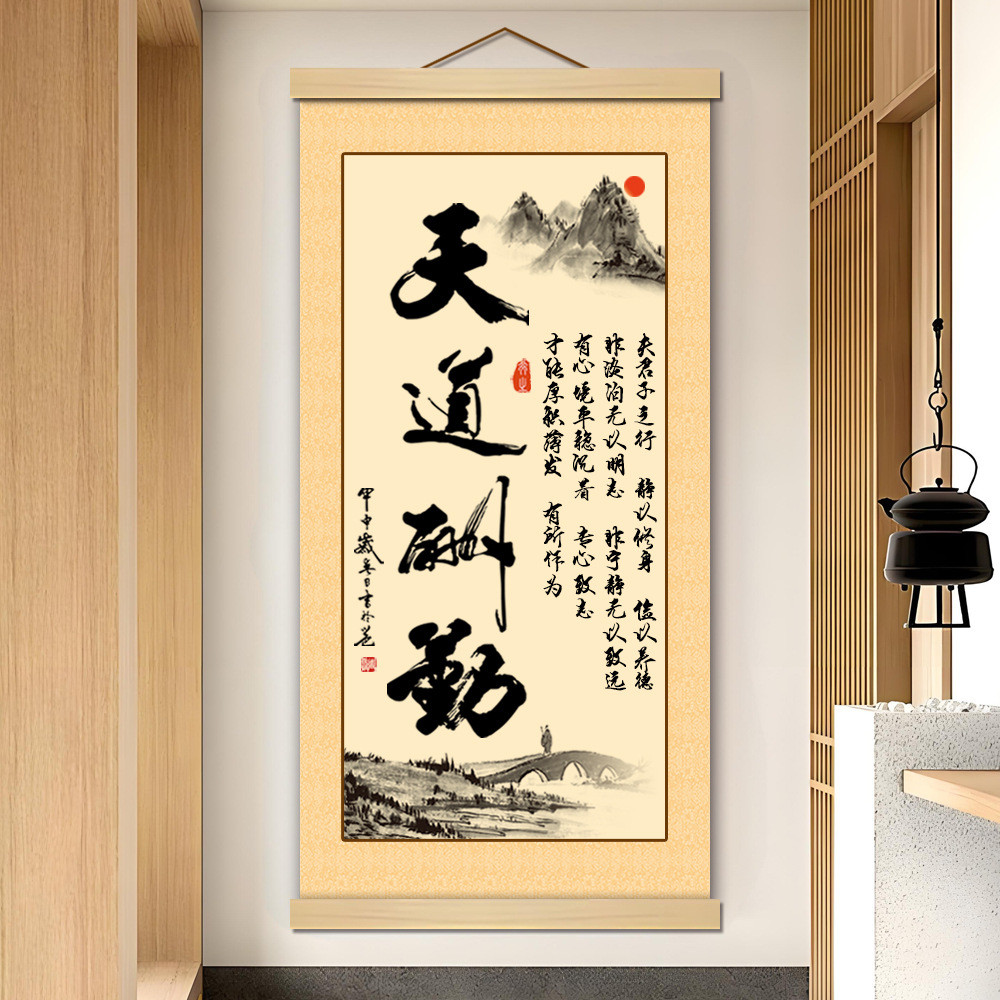 天道酬勤
夫君子之行 静以修身 俭以养德
非淡泊无以明志 非宁静无以致远
有心境平稳沉着 专心致志
才能厚积薄发 有所作为
甲申岁冬日书於邕